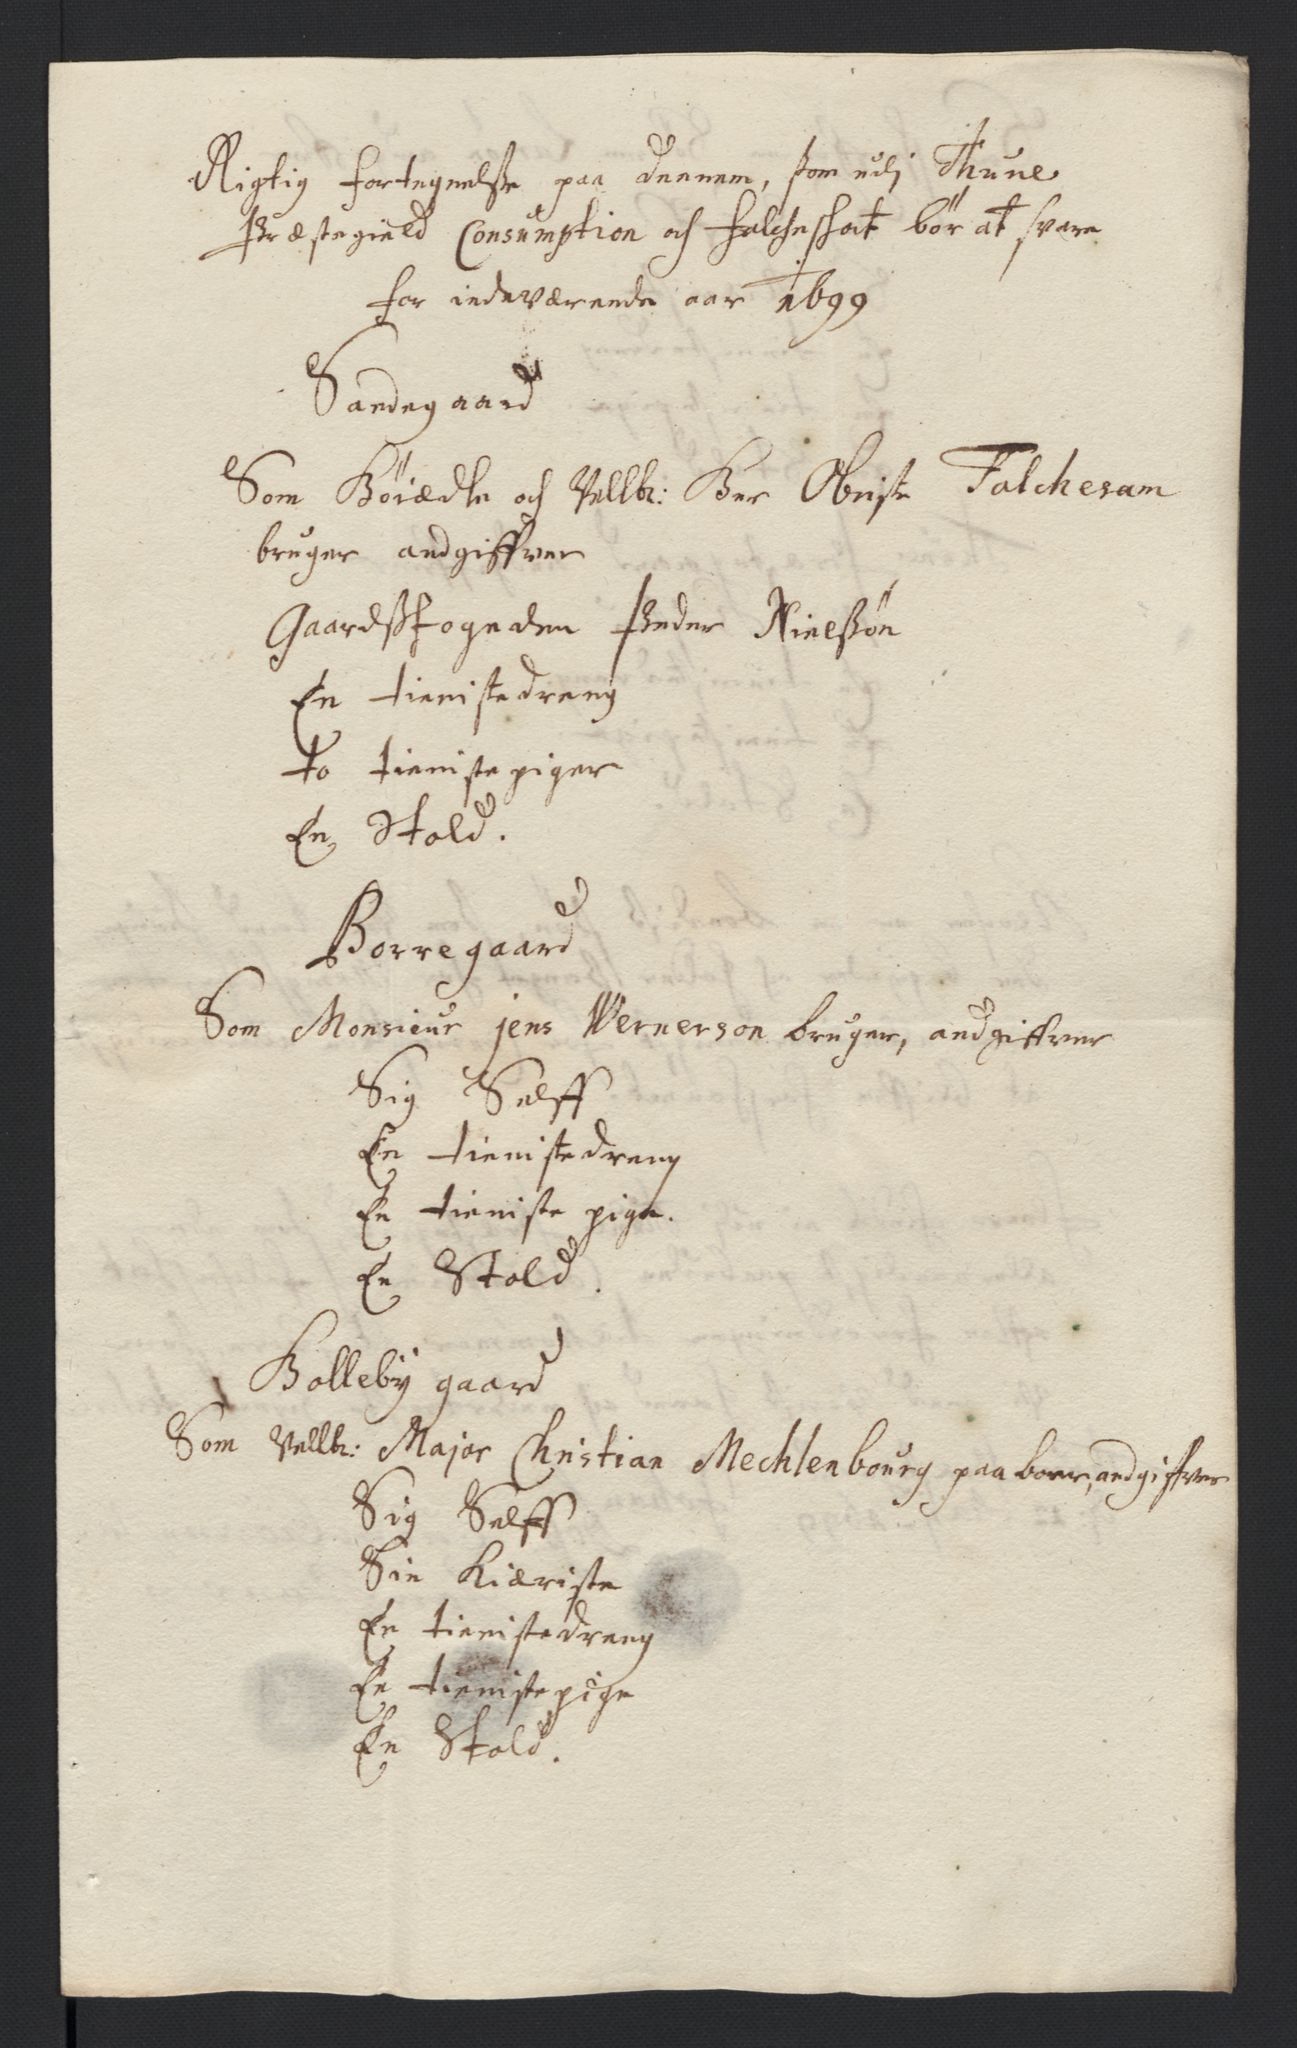 Rigtig fortegnelsse paa dennem, som udj Thune
Præstegield Consumption och folcheschat bör at svare
for indeværende aar 1699
Sandegaard
Som Höiædle och Vellb: Her Obriste Folchersam
bruger andgiffver
Gaardssfogeden Peder Nielssön
En tienistedreng
to tienistepiger
En Stold.
Borregaard
Som Monsieur jens Wernerson bruger, andgiffver
Sig Selff
En tienistedreng
En tieniste pige.
En Stold.
Holleby gaard
Som Vellb: Major Christian Mechlenbourg paa boer, andgiffver
Sig Selff
Sin Kiæriste
En tienistedreng
En tienistepige
En Stold.